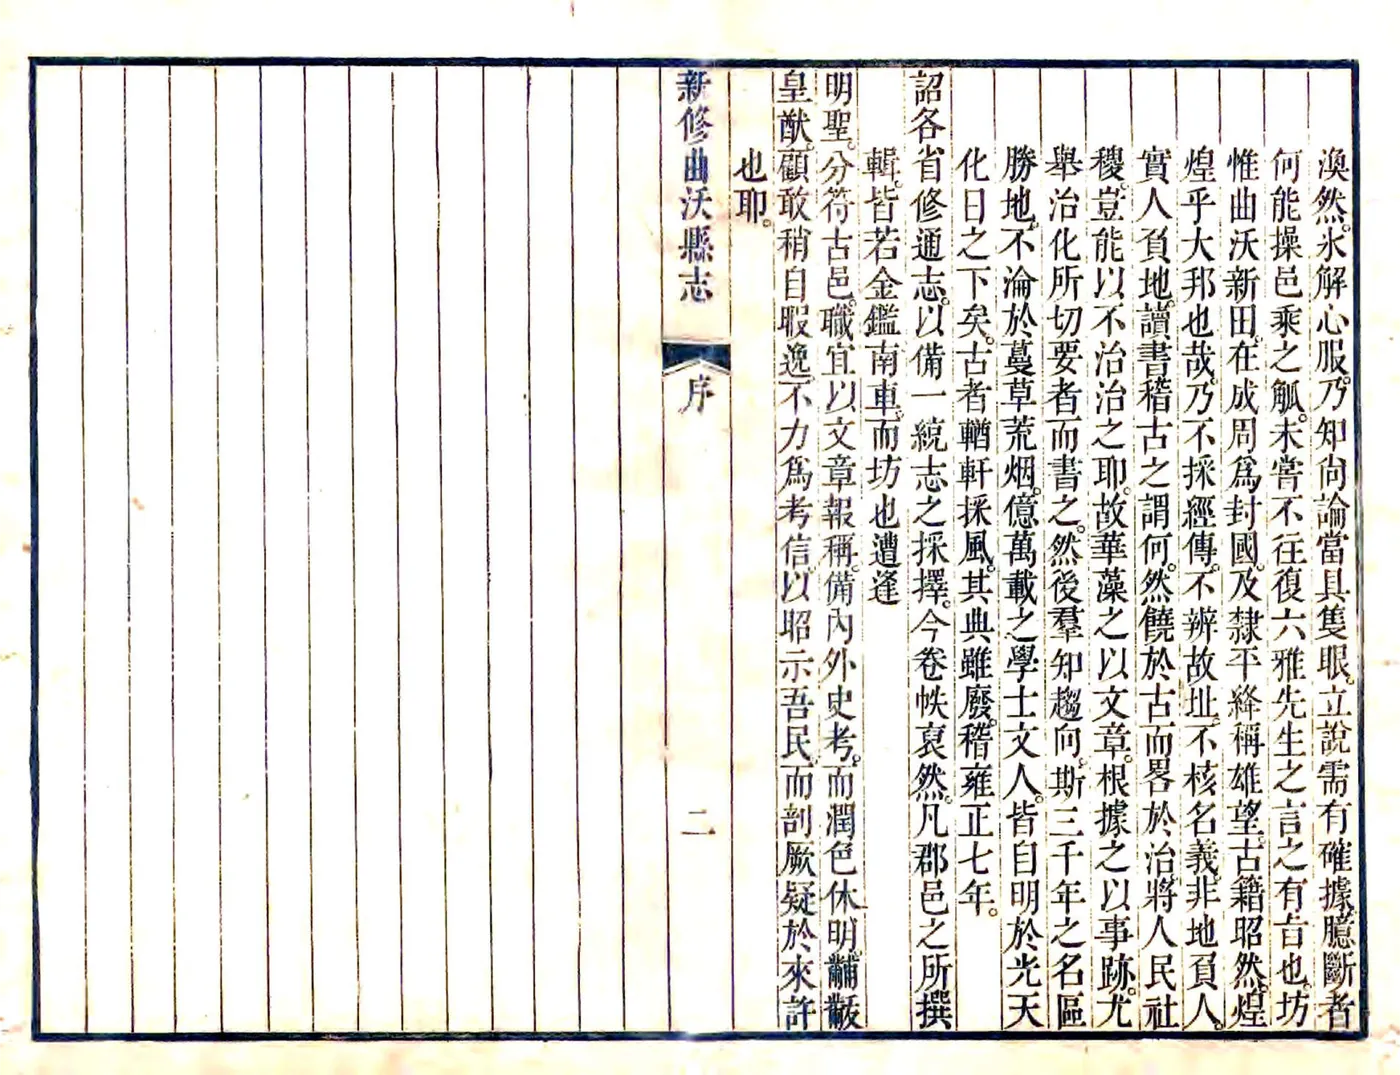 渙然。氷解心服。乃知尙論當具隻眼。立說需有確據。臆斷者
何能操邑乘之觚。未嘗不往復六雅先生之言之有旨也。坊
惟曲沃新田。在成周爲封國。及隸平絳稱雄望。古籍昭然。煌
煌乎大邦也哉。乃不採經傳。不辨故址。不核名義。非地負人。
實人負地。讀書稽古之謂何。然饒於古而畧於治。將人民社
稷。豈能以不治治之耶。故華藻之以文章。根據之以事跡。尤
舉治化所切要者而書之。然後羣知趨向。斯三千年之名區
勝地。不淪於蔓草荒烟。億萬載之學士文人。皆自明於光天
化日之下矣。古者輶軒採風。其典雖廢。稽雍正七年。
詔各省修通志。以備一統志之採擇。今卷帙裒然。凡郡邑之所撰
輯。皆若金鑑南車。而坊也遭逢
明聖。分符古邑。職宜以文章報稱。備內外史考。而潤色休明。黼黻
皇猷。顧敢稍自暇逸。不力爲考信以昭示吾民。而剖厥疑於來許
也耶。
新修曲沃縣志 序 二